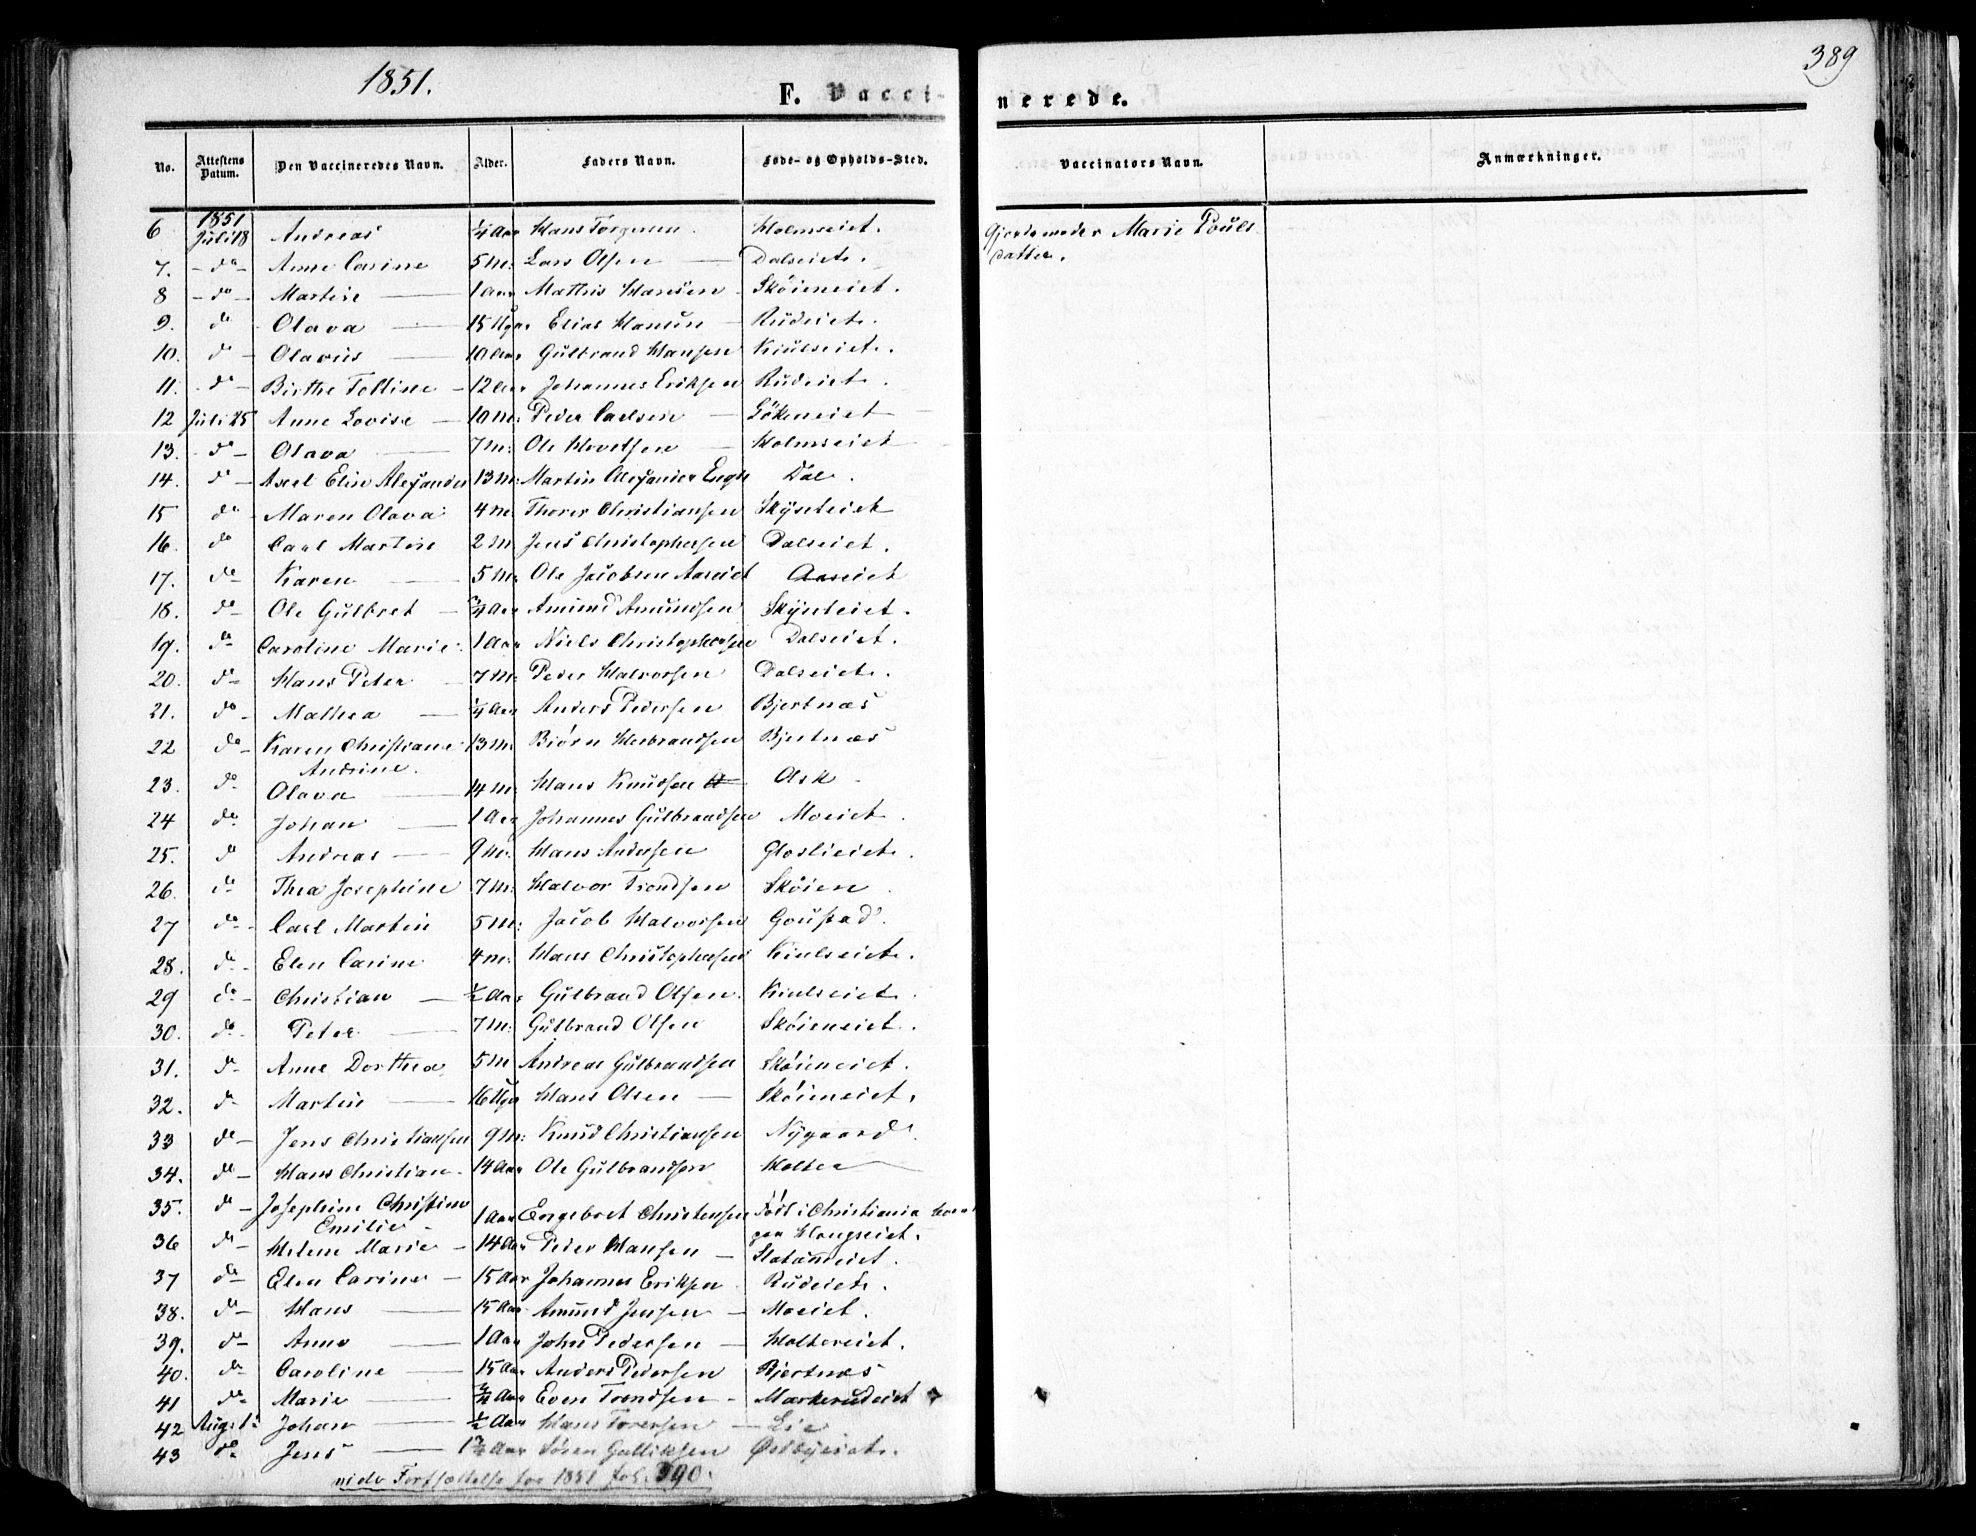 1851.
389
F. Vaccinerede.
No. Attestens Datum. Den Vaccineredes Navn. Alder. Faders Navn. Føde- og Opholds-Sted. Vaccinators Navn. Anmærkninger.
6 1851 Juli 18 Andreas ¼ Aar Hans Holmseiet. Gjordemoder Marie Pouls
datter.
7. do Anne Carine 5 M: Lars Olsen Dalseiet.
8 do Martin 1 Aar Mathis Hansen Skøieneiet.
9. do Olava 15 Uger Elias Hansen Rudeiet.
10. do Olavus 10 Aar Gulbrand Hansen Kiulseiet.
11. do Birthe Tolline 12 Aar Johannes Eriksen Rudeiet.
12 Juli 25 Anne Lovise 10 M: Peder Carlsen
13. do Olava 7 M: Ole Holmseiet
14. do Axel Elin Alexander 13 M: Martin Alexander Engh Dal.
15 do Maren Olava 4 M. Thorer Christiansen
16. do Carl Martin 2 M Jens Christophersen Dalseiet.
17. do Karen 5 M: Ole Jacobsen Aaseiet Aaseiet
18. do Ole Gulbret ¾ Aar Amund Amundsen
19. do Caroline Marie 1 Aar Niels Christophersen Dalseiet.
20. do Hans Peter 7 M: Peder Halvorsen Dalseiet.
21. do Mathea ¼ Aar Anders Pedersen Bjertnæs
22 do Karen Christiane 13 M. Biørn Herbrandsen Bjertnæs
Andrine.
23. do Olava 14 M: Hans Knudsen Ask
24 do Johan 1 Aar Johannes Gulbrandsen Moeiet.
25. do Andreas 9 M. Hans Andersen Gloslieiet.
26. do Thea Josephine 7 M: Halvor Trondsen Skøien
27 do Carl Martin 5 M: Jacob Halvorsen Goustad.
28. do Elen Carine 4 M: Hans Christophersen Kiulseiet.
29 do Christian ½ Aar Gulbrand Olsen. Kiulseiet.
30. do Peter 7 M: Gulbrand Olsen Skøieneiet.
31. do Anne Dorthea 5 M Andreas Gulbrandsen Skøieneiet.
32. do Martin 16 Uger Hans Olsen Skøieneiet.
33 do Jens Christiansen 9 M: Knud Christiansen Nygaard.
34. do Hans Christian 14 Aar Ole Gulbrandsen Holter
35. do Josephine Christine 1 Aar Engebret Christensen Født i Christiania
Emilie paa Haugseiet.
36 do Helene Marie 14 Aar Peder Hansen
37 do Elen Carine 15 Aar Johannes Eriksen Rudeiet.
38. do Hans 15 Aar Amund Jensen Moeiet.
39. do Anne 1 Aar John Pedersen Holtereiet.
40. do Caroline 15 Aar Anders Pedersen Bjertnæs
41 do Marie ¾ Aar Even Trondsen Markerudeiet
42 Aug. 1: Johan ½ Aar Hans Toversen Lie
43 do Jens Aar Søren Gulliksen Østbyeiet.
vide Fortsættelse for 1851 fol. 390.